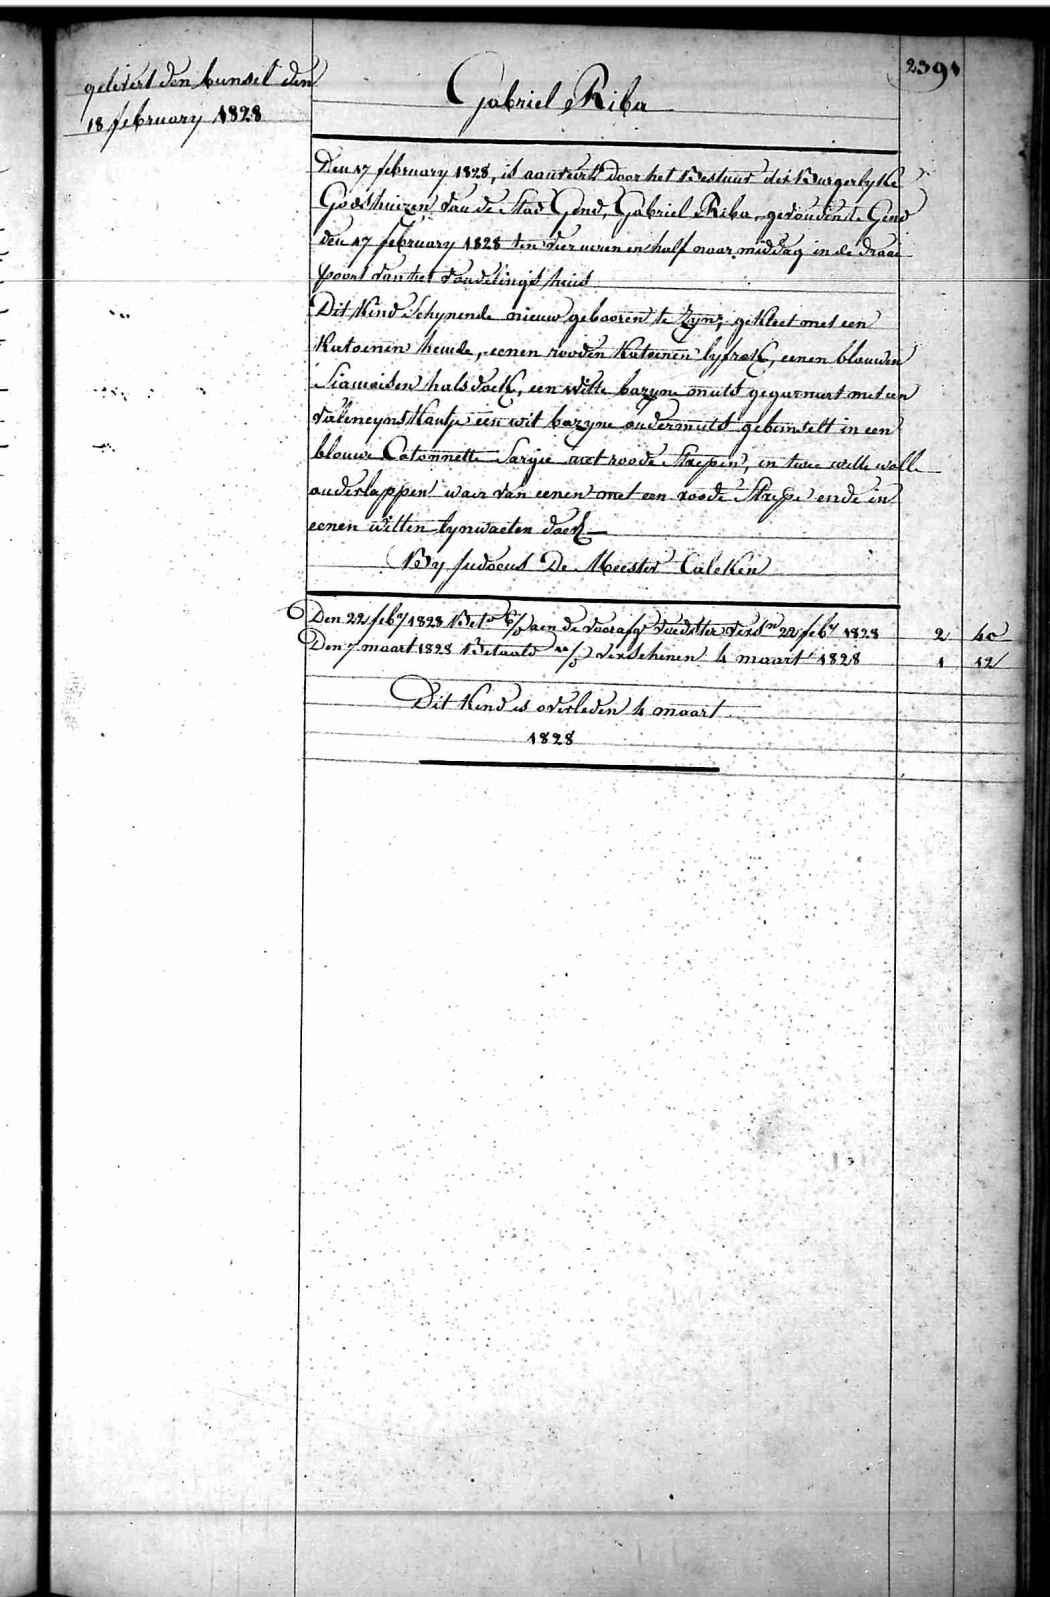 2391
gelevert den bunsel den
18 february 1828
Gabriel Riba
Den 17 february 1828, is aanveert door het Bestuur der Burgerlyke
Godshuizen van de Stad Gend, Gabriel Riba, gevonden te Gend
den 17 february 1828 ten vier uren en half naar middag in de draai
poort van het vondelingshuis
Dit Kind Schynende nieuw gebooren te Zyn, gekleet met een
Katoenen hemde, eenen rooden Katoenen lyfrok, eenen blauwen
Siamoisen halsdoek, een witte bazyne muts gegarneert met een
valencyns Kantje een wit bazyne ondermuts gebunselt in een
blauwe Catonnette Sargie met roode Strepen, en twee witte wolle
onderlappen waer van eenen met een roode Strepe ende in
eenen witten lynwaeten doek
By Judocus De Meester Caleken
Den 22 feby 1828 Bet aen de voorafge voedster vers 22 feby 1828 2 40
Den 7 maart 1828 Betaald verschenen 4 maart 1828 1 12
Dit Kind is overleden 4 maart
1828